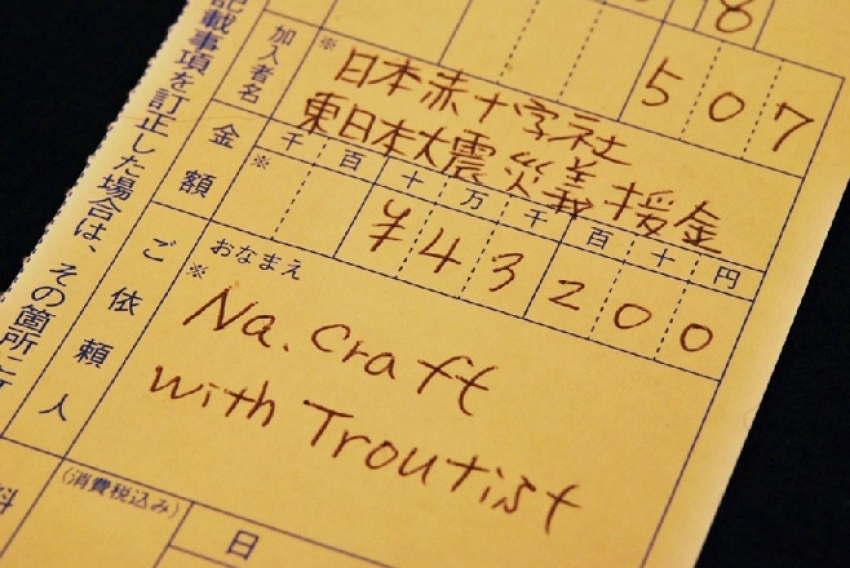 8
5 0 7
記載事項を訂正した場合は、その箇所に
加入者名
※
日本赤十字社
東日本大震災義援金
金額
千 百 十 万 千 百 十 円
※
¥43200
ご依頼人
おなまえ
※
Na. Craft
with Troutist
料
(消費税込み)
日